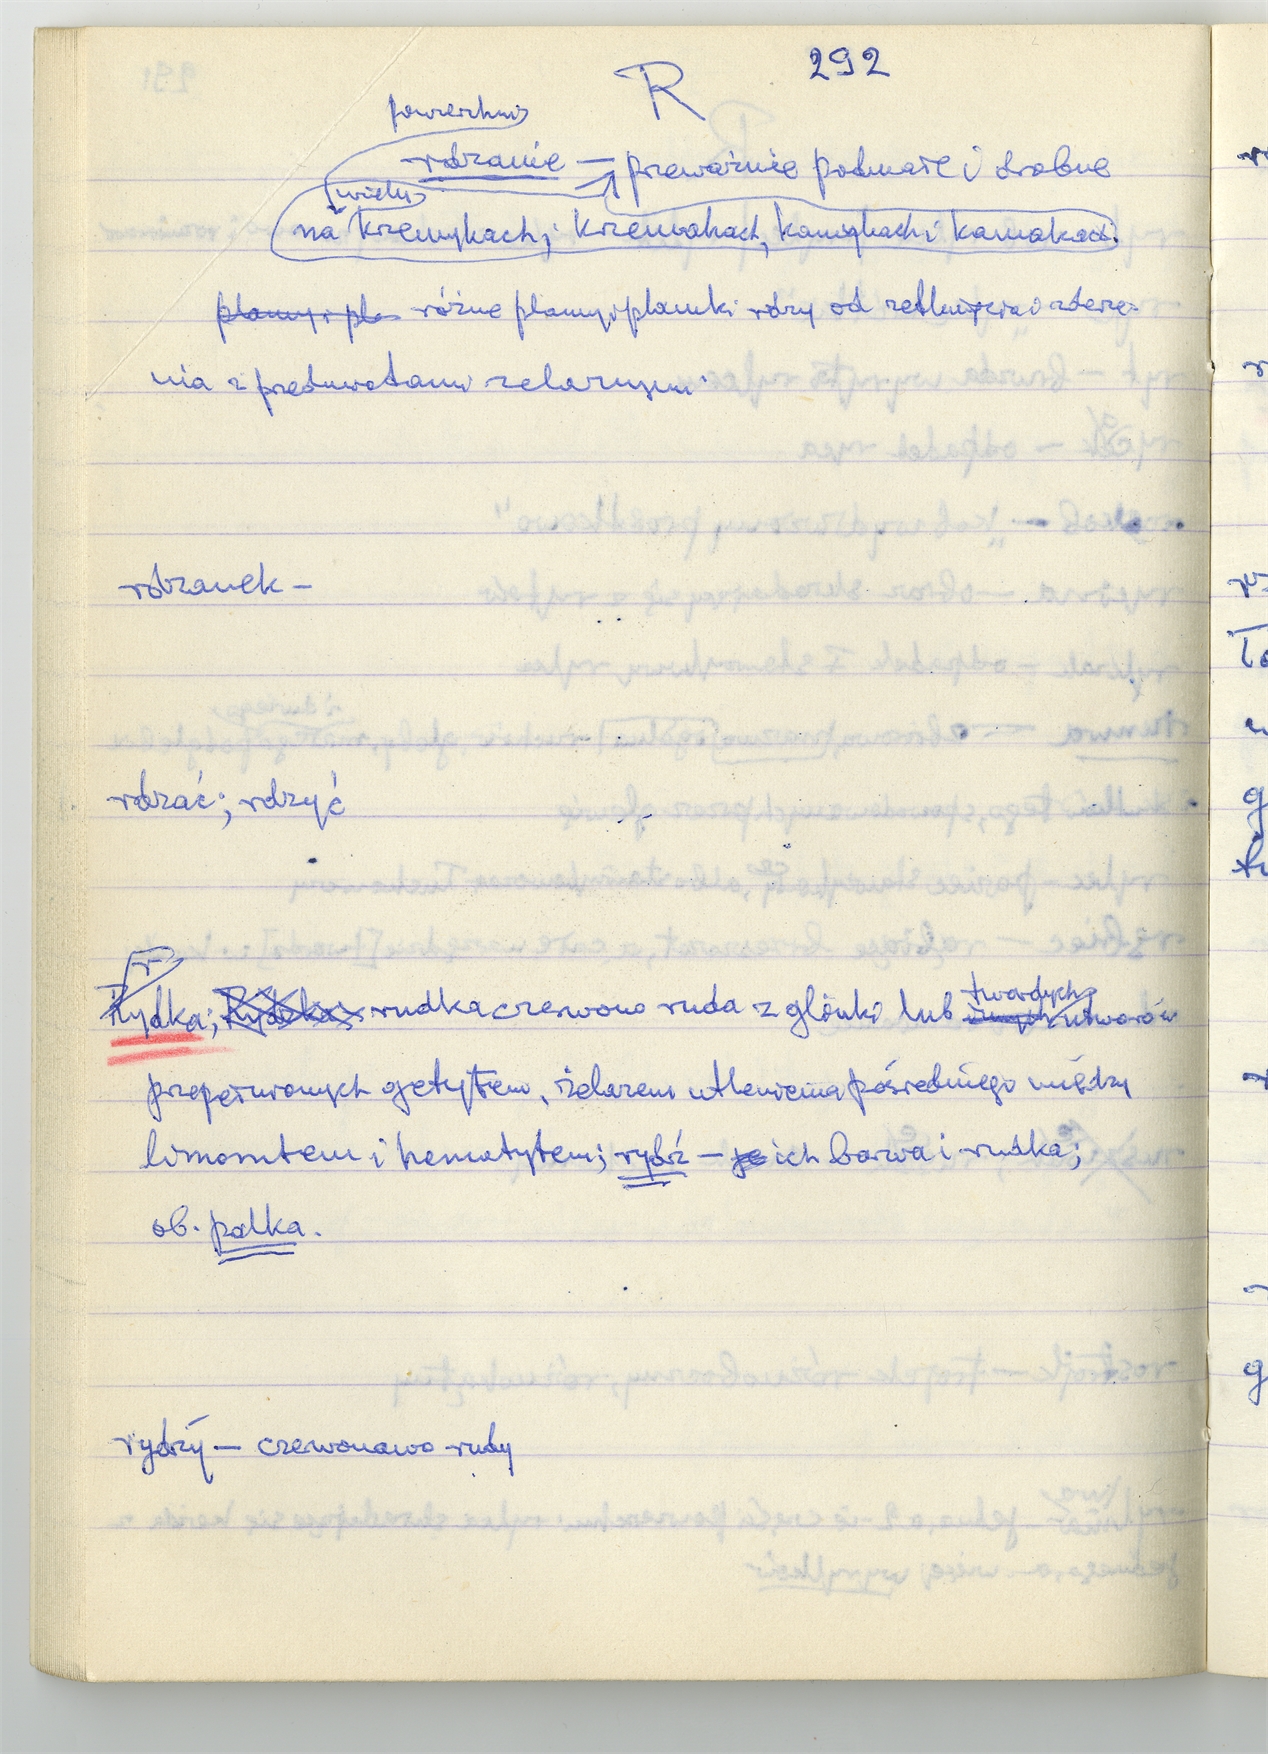 R 292
powierzchni
rdzanie — przeważnie podmałe i drobne
wielu
na krzemykach; krzemakach, kamykach i kamakach.
plamy i pla różne plamy i plamki rdzy od zetknięcia i zderze-
nia z przedmiotami żelaznymi
rdzanek —
rdzać; rdzyć
r
Rydka; rudka czerwono ruda z glinki lub twardych utworów
przepełnionych getytem, żelazem utlenienia pośredniego między
limonitem i hematytem; rydź — ich barwa i rudka;
ob. palka.
rydzy — czerwonawo rudy